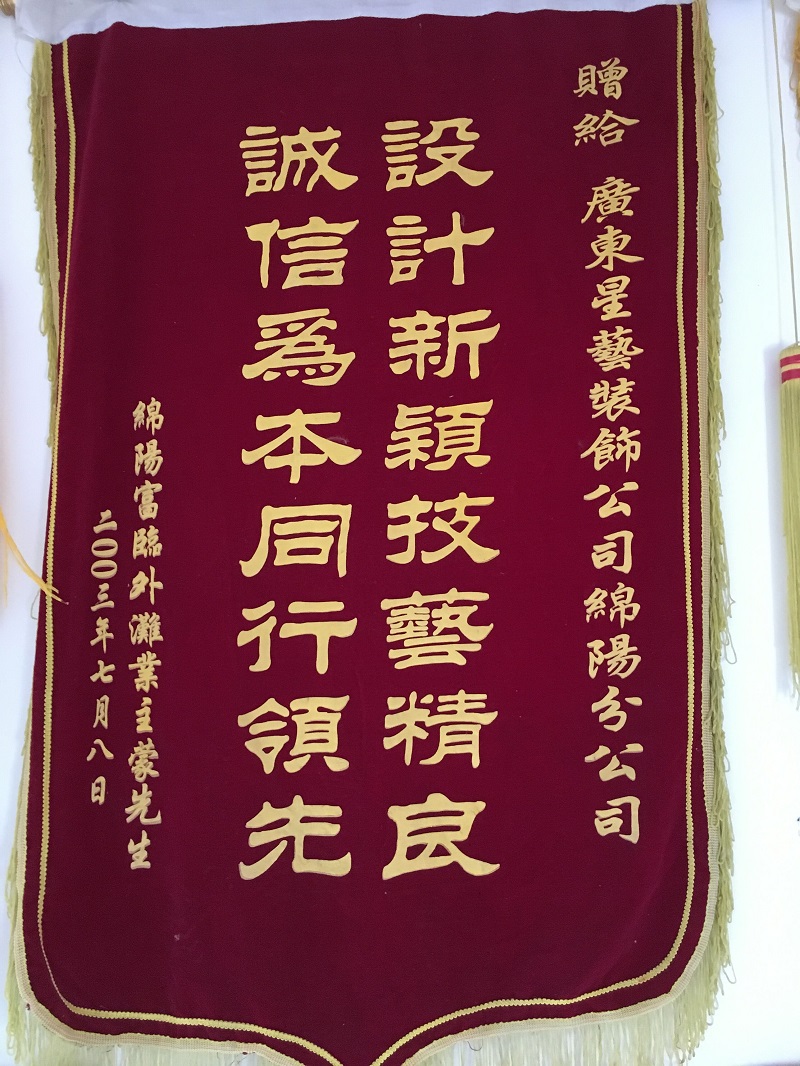 贈給 廣東星藝裝飾公司綿陽分公司
設計新穎技藝精良
誠信爲本同行領先
綿陽富臨外灘業主蒙先生
二〇〇三年七月八日